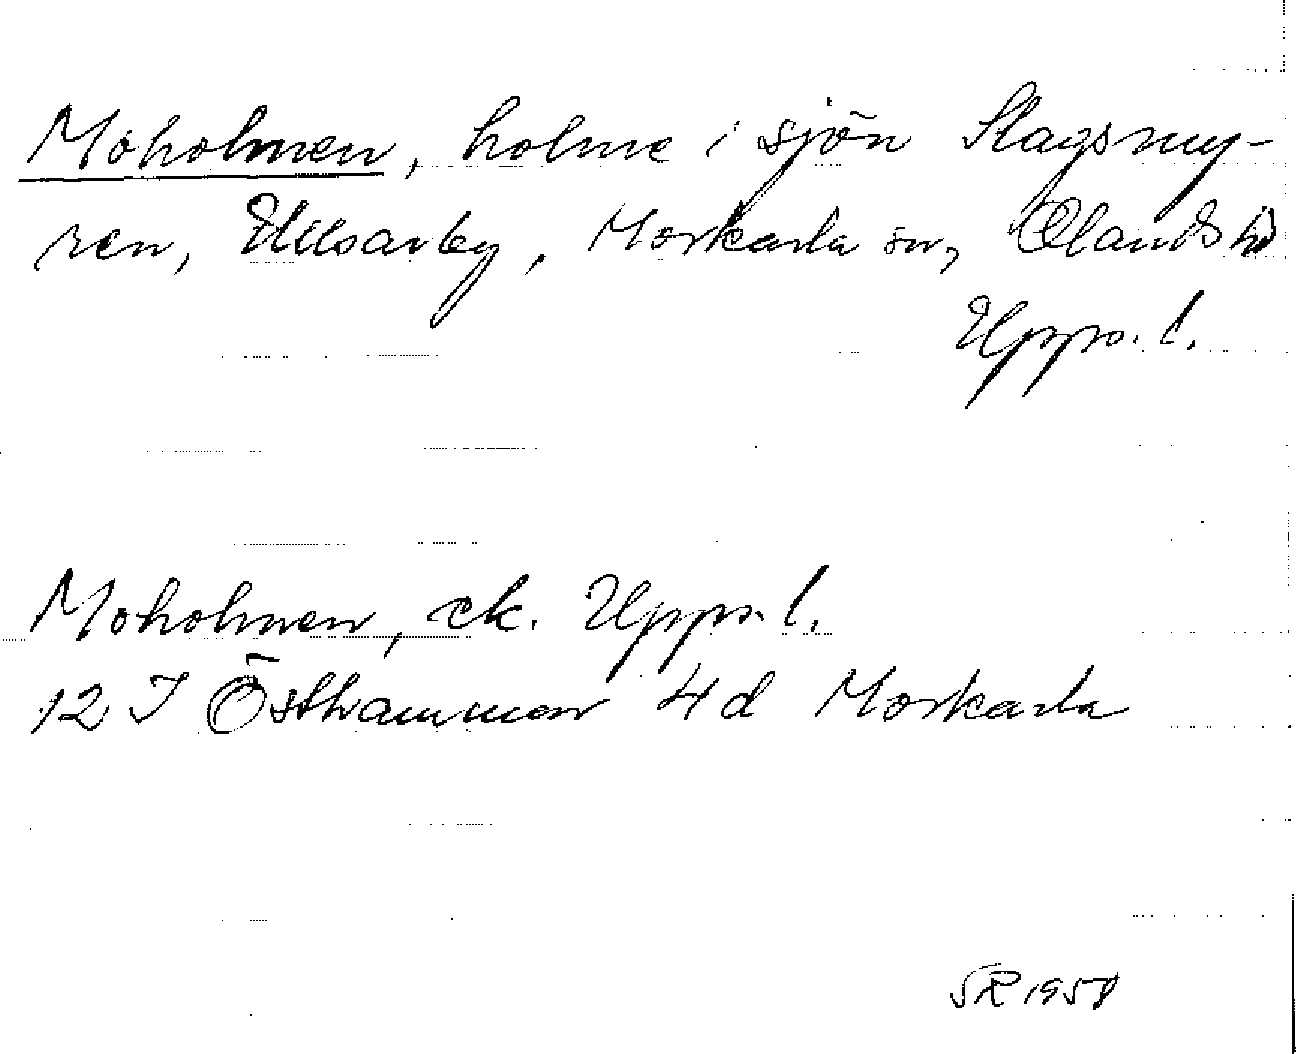 Moholmen, holme i sjön Slagsmy-
ren, Ullsarby, Morkarla sn, Olands hd
Upps. l.
Moholmen, ek. Upps. l.
12 I Östhammar 4d Morkarla
SR 1958